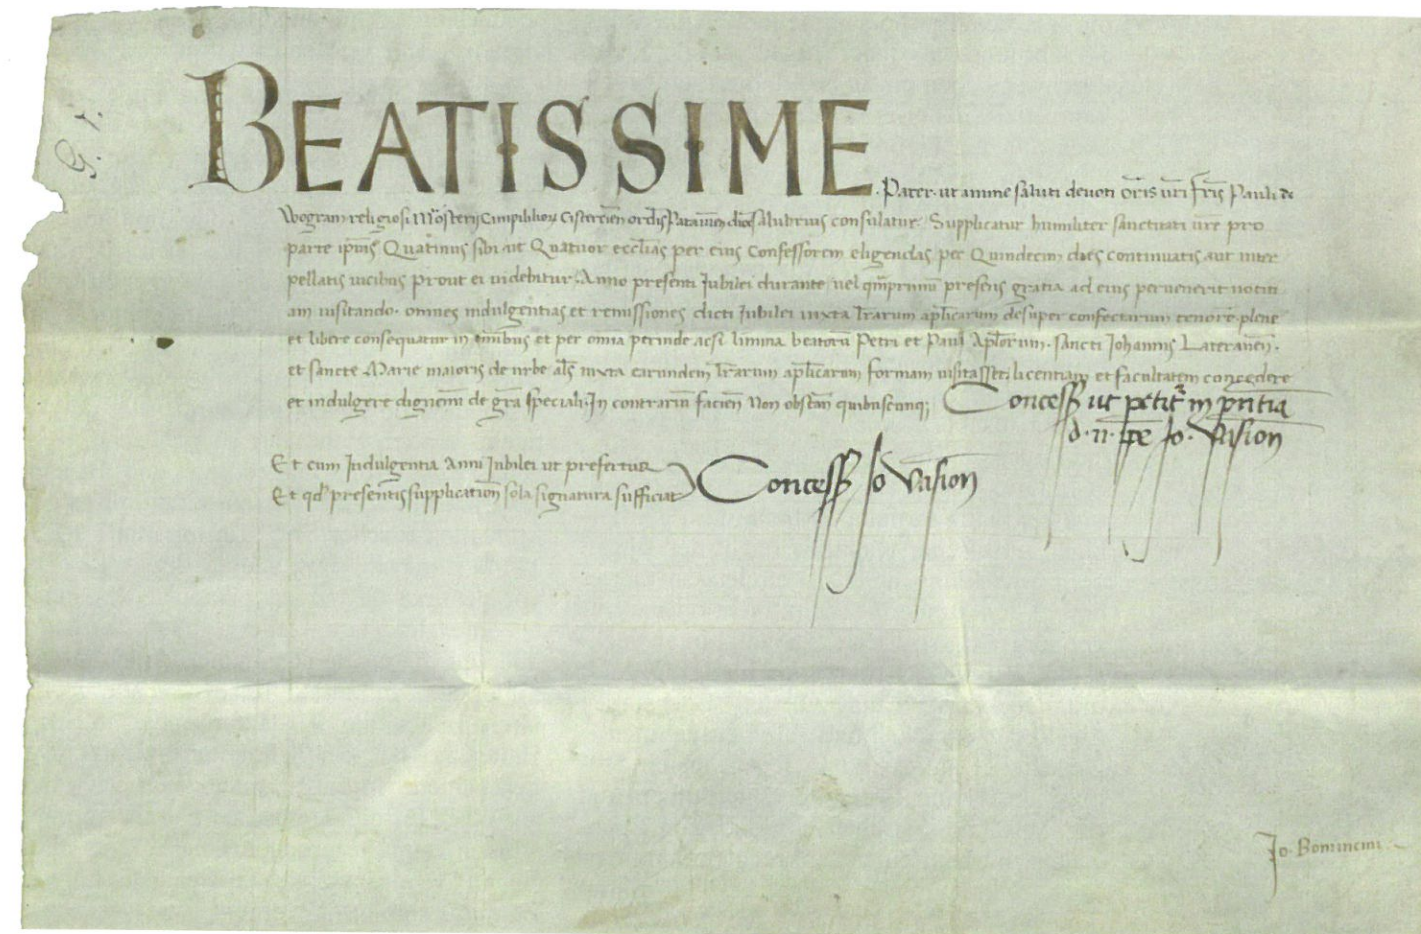 G. 1.
BEATISSIME
.Pater. ut anime saluti devoti oris vri fris Pauli de
Wogram religiosi Mosterij Campililior Cistercien ordis Patavien dioc salubrius consulatur. Supplicatur humiliter sanctitati vre pro
parte ipius Quatinus sibi ut Quatuor ecclias per eius Confessorem eligendas per Quindecim dies continuatis aut inter
pellatis vicibus prout ei videbitur. Anno presenti Jubilei durante vel qmprimum presens gratia ad eius pervenerit notiti
am visitando. omnes indulgentias et remissiones dicti Jubilei iuxta lrarum aplicarum desuper confectarum tenore. plene
et libere consequatur in omibus et per omia perinde acsi limina beatoru Petri et Pauli Aplorum. sancti Johannis Lateranen.
et sancte Marie maioris de urbe als iuxta earundem lrarum aplicarum formam visitasset. licentiam et facultatem concedere
et indulgere dignemi de gra speciali. In contrariu facien Non obstan quibuscunq;
Concess ut petit in pntia
d. n. ppe Jo. Vasion
Et cum Indulgentia Anni Jubilei ut prefertur
Et qd presentis supplication sola signatura sufficiat
Concess Jo Vasion
Jo. Bonincini